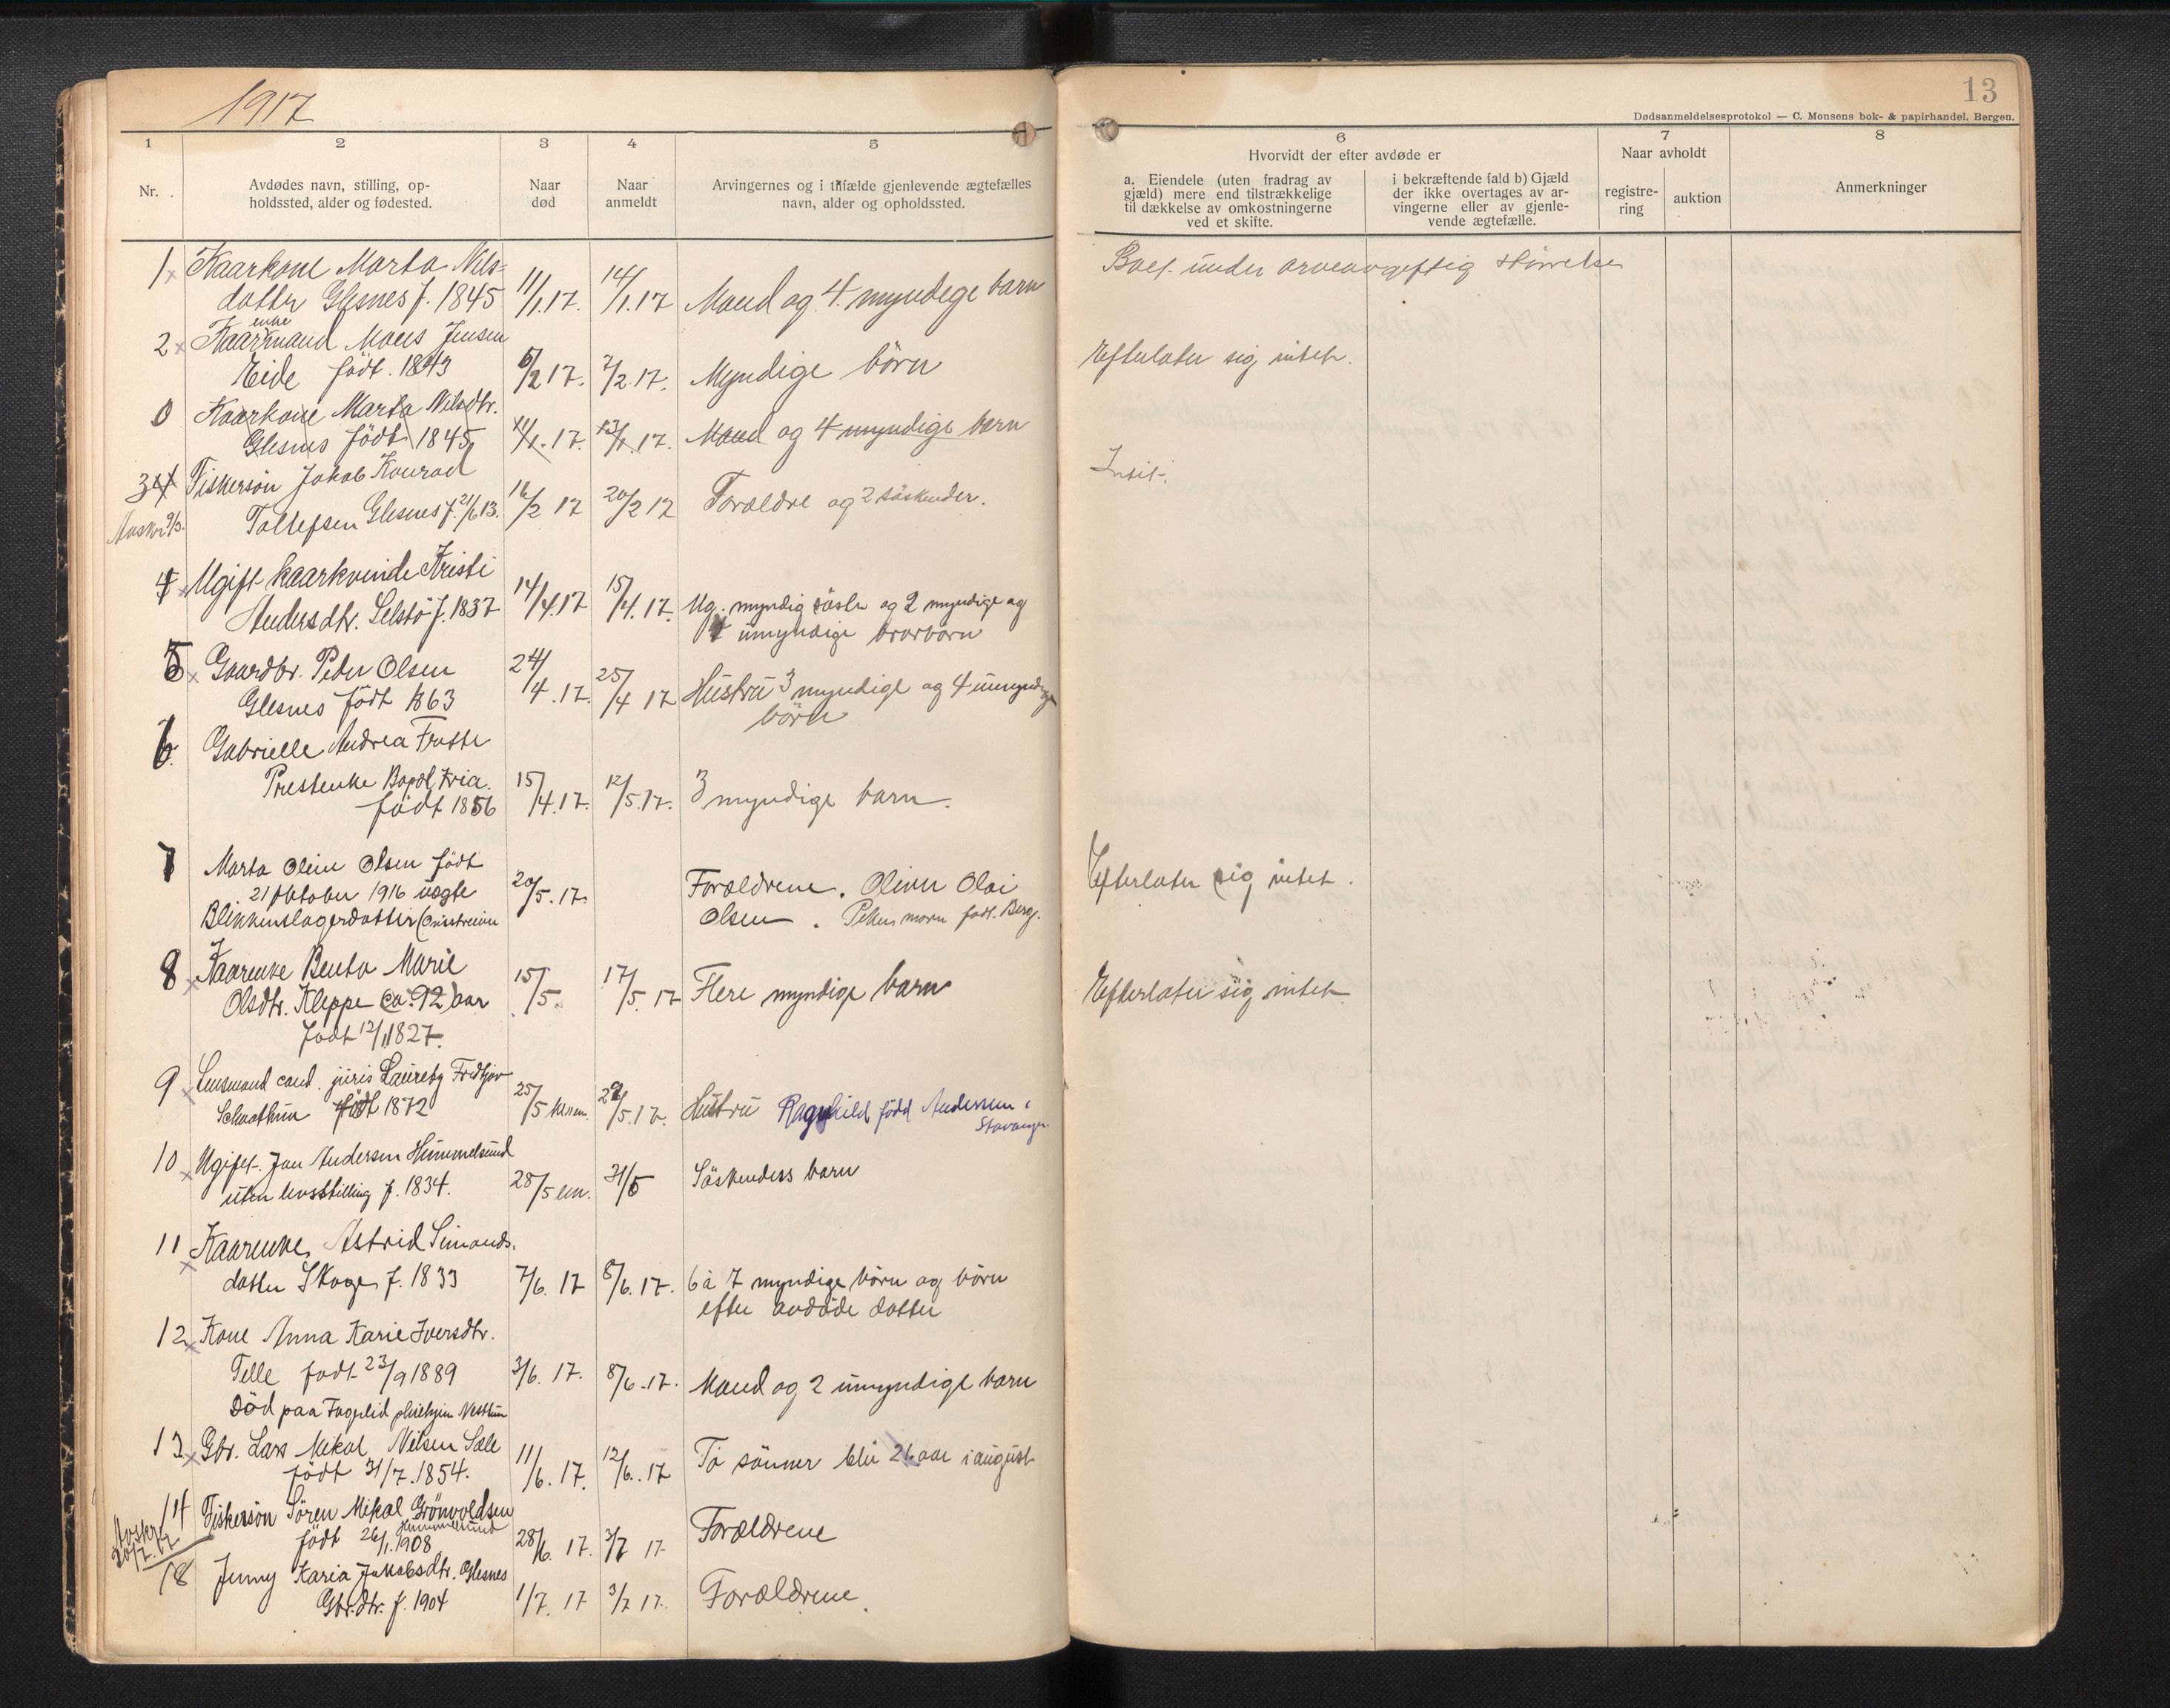 1917
13
Dødsanmeldelsesprotokol — C. Monsens bok- & papirhandel, Bergen.
1 2 3 4 5 6 7 8
Nr.
Avdødes navn, stilling, op-
holdssted, alder og fødested.
Naar
død
Naar
anmeldt
Arvingernes og i tilfælde gjenlevende ægtefælles
navn, alder og opholdssted.
Hvorvidt der efter avdøde er
a. Eiendele (uten fradrag av
gjæld) mere end tilstrækkelige
til dækkelse av omkostningerne
ved et skifte.
i bekræftende fald b) Gjæld
der ikke overtages av ar-
vingerne eller av gjenle-
vende ægtefælle.
Naar avholdt
registre-
ring
auktion
Anmerkninger
1 Kaarkone Marta Nils-
datter Glesnes f. 1845 11/1.17. 14/1.17 Mand og 4 myndige barn
Boet under arveavgiftig størrelse
enke
2 Kaarmand Mons Jensen
Eide født 1843 6/2 17. 7/2.17. Myndige börn
Efterlater sig intet.
0 Kaarkone Marta Nilsdtr.
Glesnes födt 1845 11/1.17. 13/1 17. Mand og 4 myndige barn
3 Fiskersön Jakob Konrad
Tollefsen Glesnes f. 21/6 13. 16/2 17 20/2 17 Forældre og 2 söskender.
Intet.
4 Ugift kaarkvinde Kristi
Andersdtr. Selstö f. 1837 14/4.17 15/4.17. Ug. myndig söster og 2 myndige og
umyndige brorbarn
5 Gaardbr. Peder Olsen
Glesnes födt 1863 24/4.17. 25/4 17 Hustru 3 myndige og 4 umyndige
börn
6 Gabrielle Andrea
Prestenke
födt 1856 15/4.17. 12/5.17. 3 myndige barn.
7 Marta Oline Olsen födt
21 Oktober 1916 uægte
Blikkenslagerdatter 20/5.17. Forældrene. Oliver Olai
Olsen.
Efterlater sig intet.
8 Kaarenke Benta Marie
Olsdtr. Kleppe ca. 92 aar 15/5. 17/5 17 Flere myndige barn
födt 12/1 1827.
Efterlater sig intet
9 Lensmand cand. juris Lauritz Fridtjov
Schoathun født 1872 25/5 29/5.17. Hustru Ragnhild född Andersen i
Stavanger
10 Ugift Jan Andersen Himmelsund
uten livsstilling f. 1834. 28/5 em. 31/5 Söskendes barn
11 Kaarenke, Astrid Simons-
datter Skoge f. 1833 7/6. 17 8/6.17. 6 à 7 myndige börn og börn
efter avdöde datter
12 Kone Anna Karie Iversdtr.
Telle født 23/9 1889 3/6. 17. 8/6.17. Mand og 2 umyndige barn
Död paa Fagerlid pleiehjem Nesttun
13 Gbr. Lars Mikal Nilsen Sæle
født 31/7.1854. 11/6. 17. 12/6.17 To sönner blir 26 aar i august
14 Fiskersön Sören Mikal Grönvoldsen
Himmelsund
födt 26/1.1908 28/6. 17. 3/7 17 Forældrene
Avskr.
20/7.17
18 Jenny Karia Jakobsdtr. Glesnes
Gbr.dtr. f. 1904 1/7. 17 3/7 17. Forældrene.